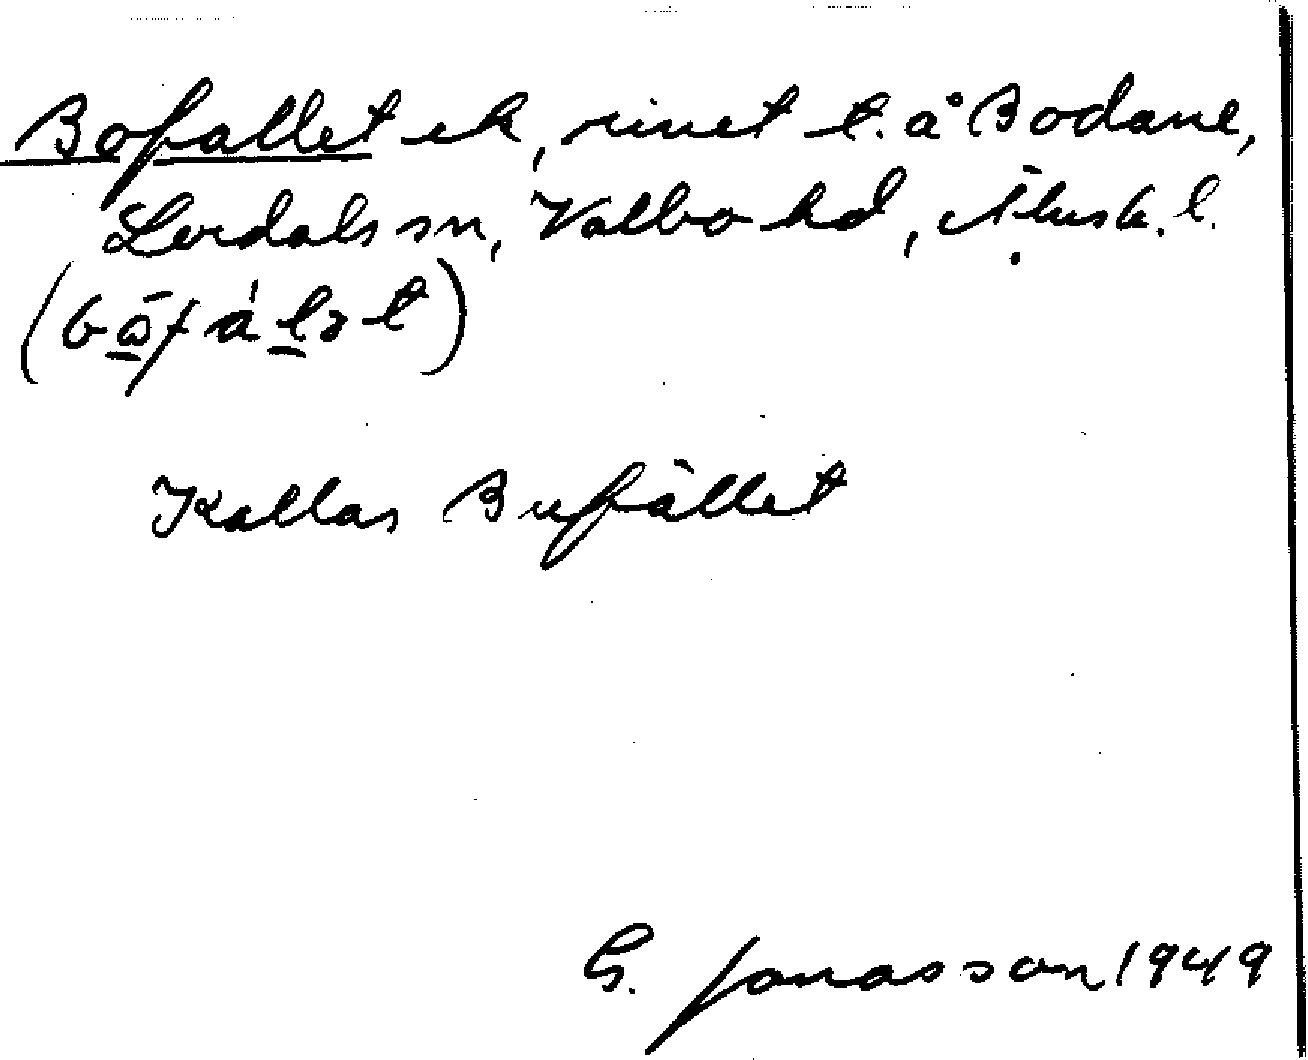 Bofallet ek, rivet t. å Bodane,
Lerdals sn, Valbo hd, Älvsb. l.
Kallas Bufället
G. Jonasson 1949